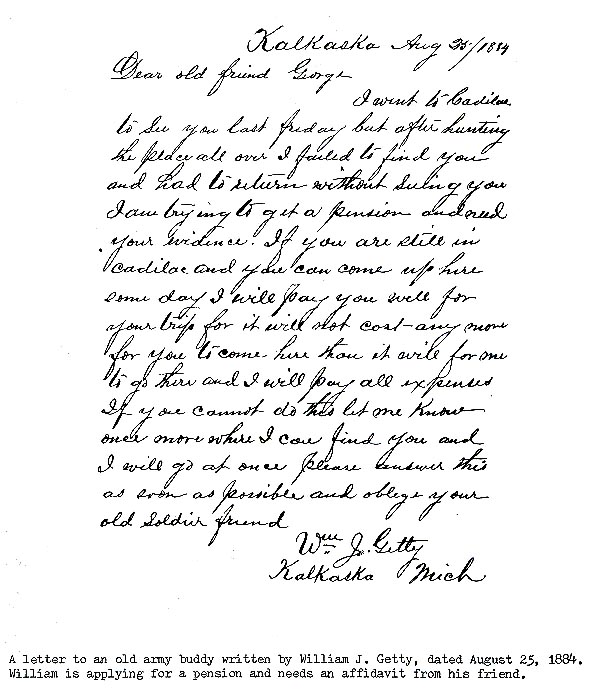 Kalkaska Aug 25/1884
Dear old friend George
I went to Cadilac
to See you last friday but after hunting
the place all over I failed to find you
and had to return without Seeing you
I am trying to get a pension and need
your evidence. If you are still in
Cadilac and you can come up here
some day I will pay you well for
your trip for it will not cost any more
for you to come here than it will for me
to go there and I will pay all expenses
If you cannot do this let me Know
once more where I can find you and
I will go at once please answer this
as soon as possible and oblige your
old Soldier friend
Wm J. Getty
Kalkaska Mich
A letter to an old army buddy written by William J. Getty, dated August 25, 1884.
William is applying for a pension and needs an affidavit from his friend.